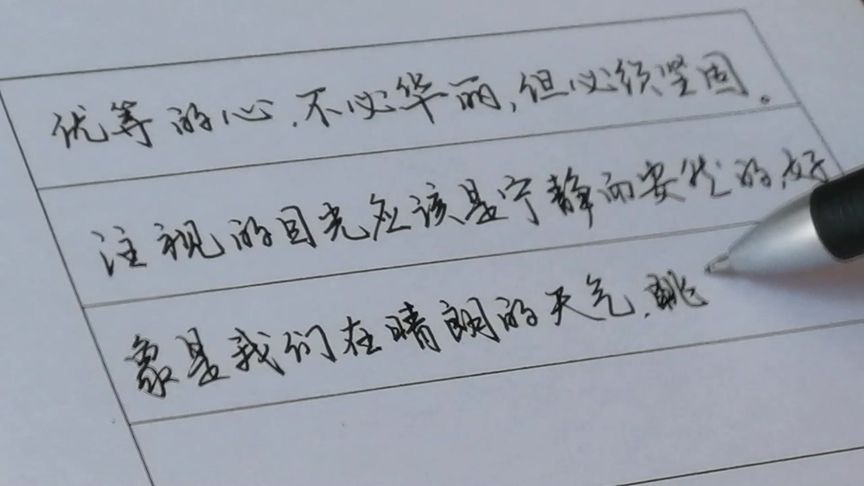 优等的心,不必华丽,但必须坚固。
注视的目光应该是宁静而安然的,好
象是我们在晴朗的天气,眺